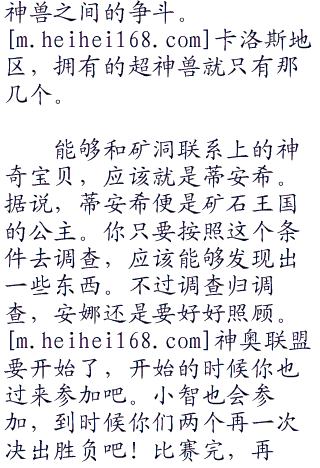 神兽之间的争斗。
[m.heihei168.com]卡洛斯地
区，拥有的超神兽就只有那
几个。
能够和矿洞联系上的神
奇宝贝，应该就是蒂安希。
据说，蒂安希便是矿石王国
的公主。你只要按照这个条
件去调查，应该能够发现出
一些东西。不过调查归调
查，安娜还是要好好照顾。
[m.heihei168.com]神奥联盟
要开始了，开始的时候你也
过来参加吧。小智也会参
加，到时候你们两个再一次
决出胜负吧！比赛完，再